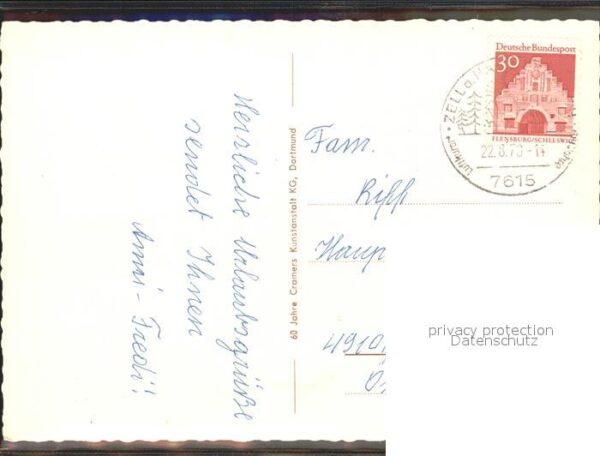 Herzliche Urlaubsgrüße
sendet Ihnen
Anni - Fredi!
60 Jahre Cramers Kunstanstalt KG, Dortmund
Deutsche Bundespost
30
FLENSBURG/SCHLESWIG
ZELL a. H.
22.8.73-1
Luftkurort
7615
Fam.
4910,
privacy protection
Datenschutz